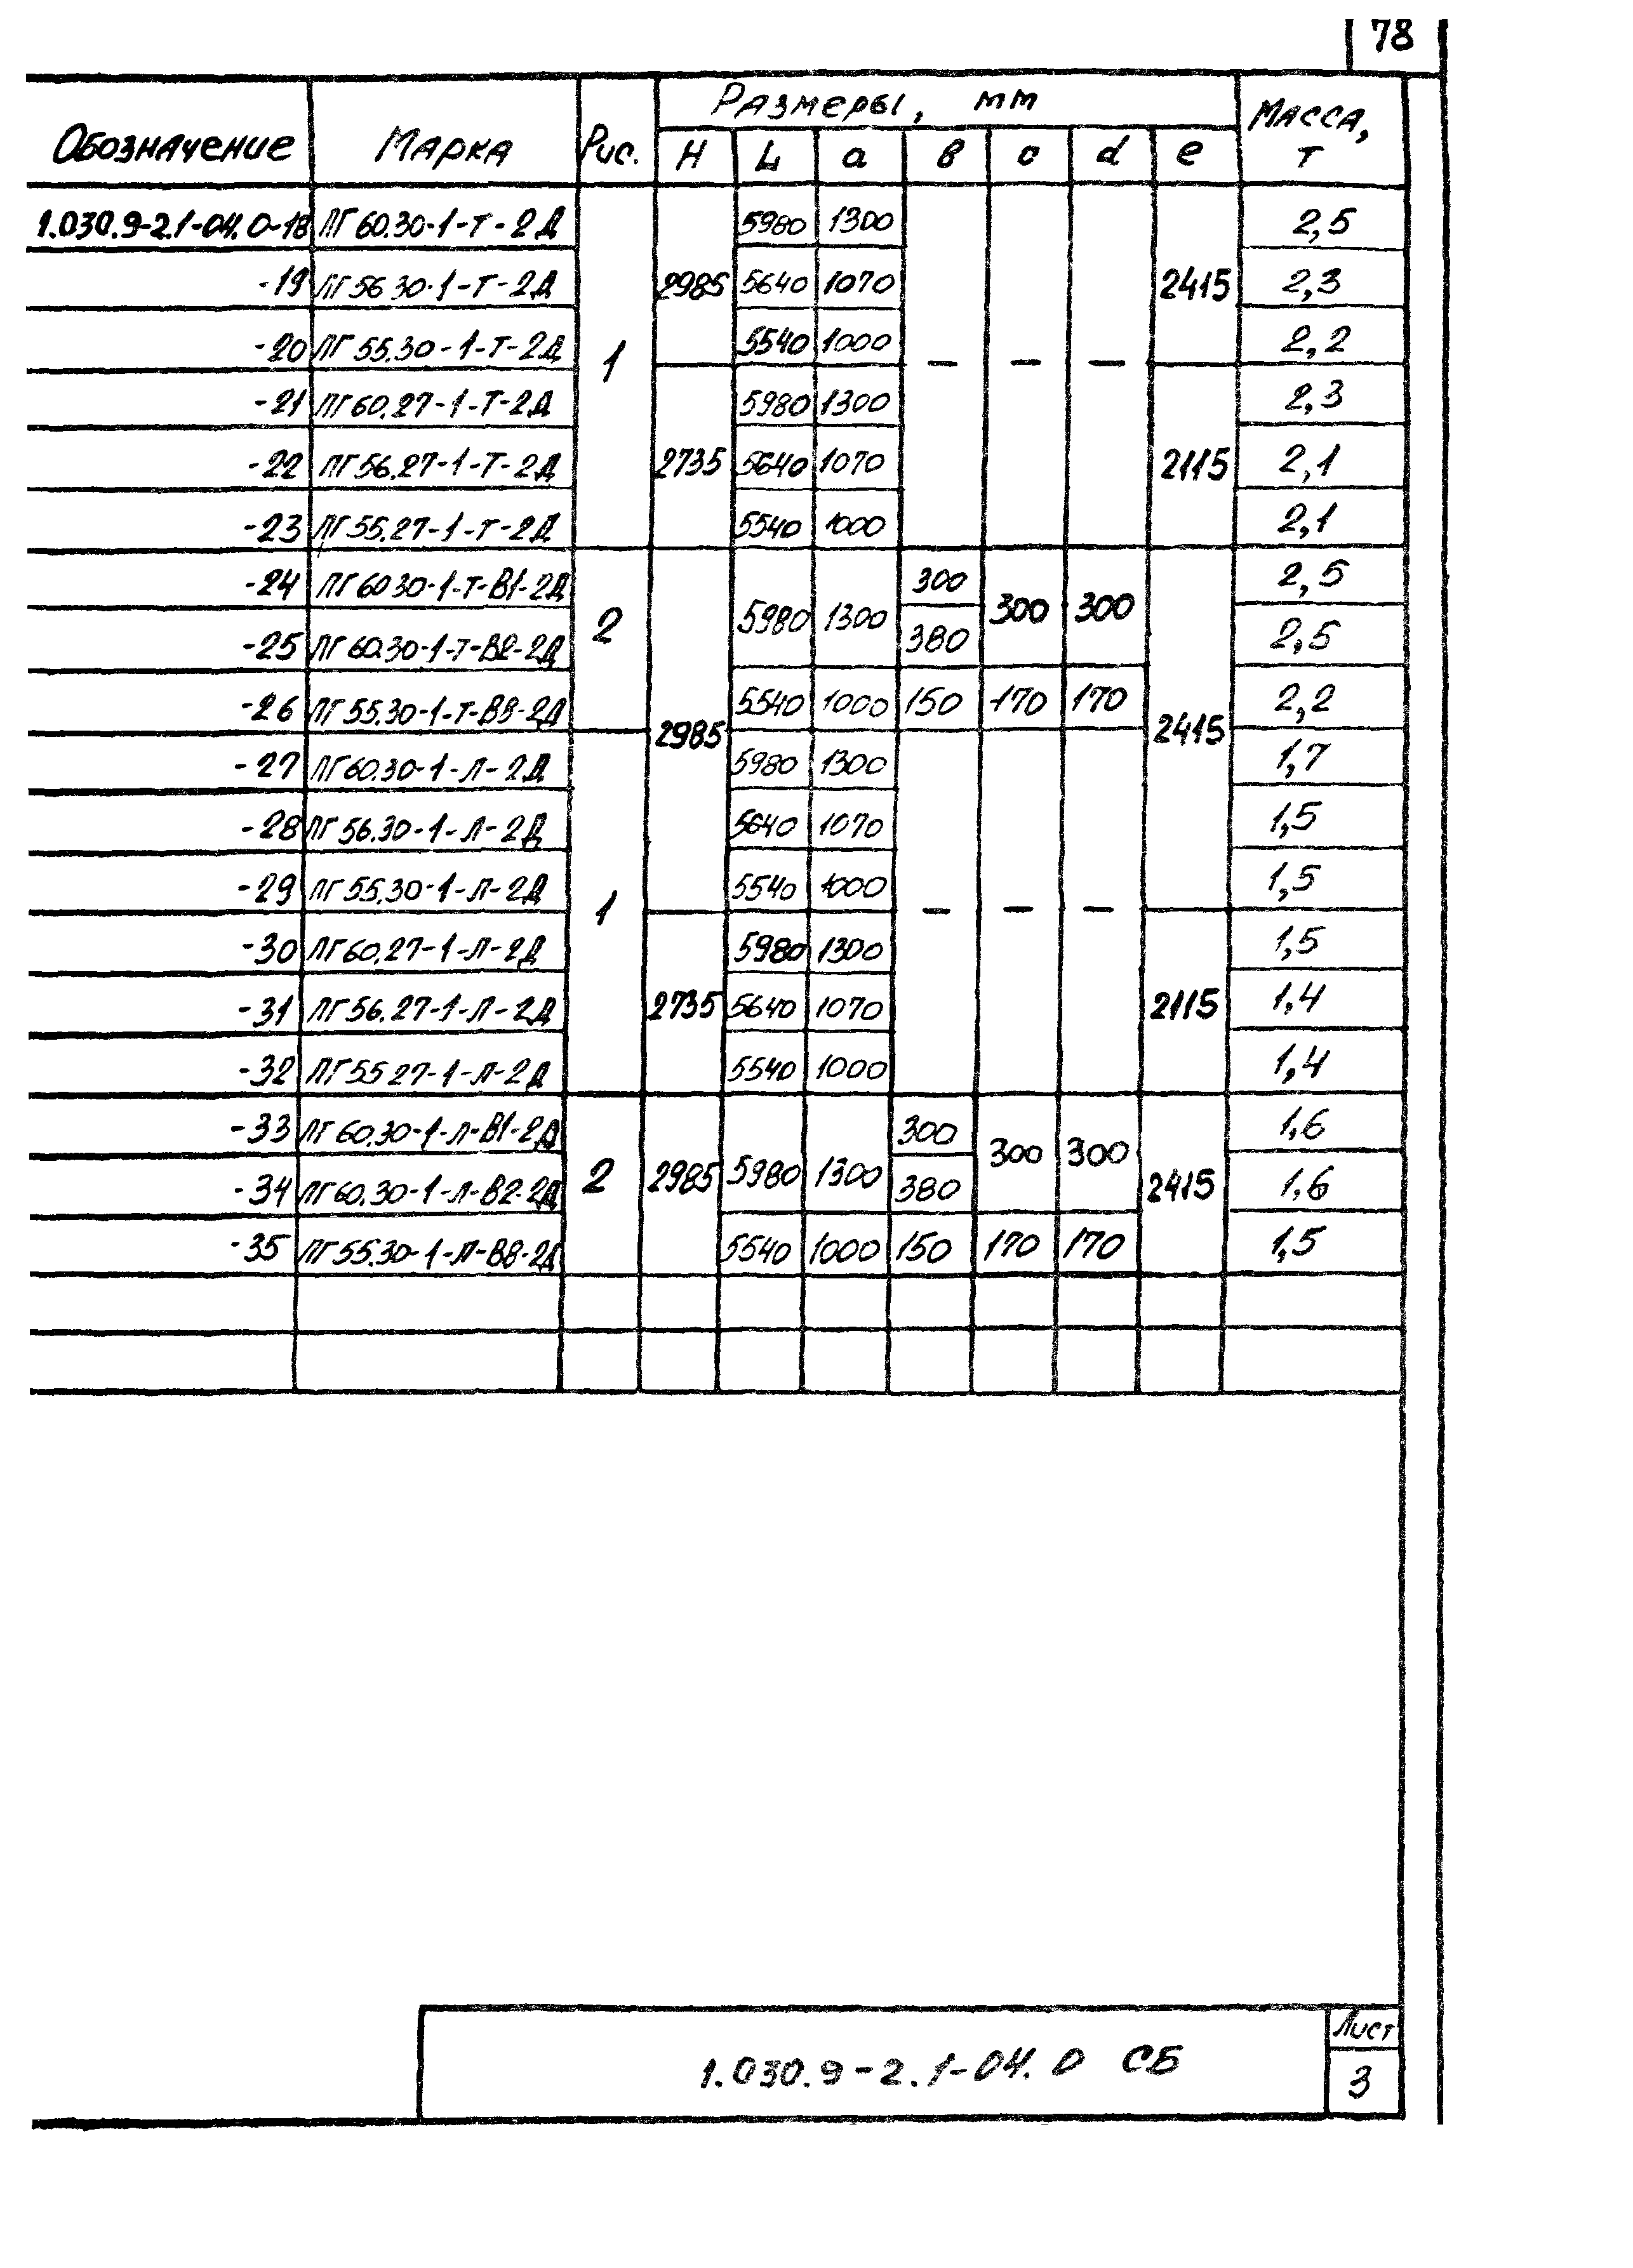 78
Обозначение Марка Рис. Размеры, мм Масса, т
H L a в c d e
1.030.9-2.1-04.0-18 ПГ60.30-1-т-2Д 1 2985 5980 1300 — — — 2415 2,5
-19 ПГ56 30-1-т-2Д 5640 1070 2,3
-20 ПГ55.30-1-т-2Д 5540 1000 2,2
-21 ПГ60.27-1-т-2Д 2735 5980 1300 2115 2,3
-22 ПГ56.27-1-т-2Д 5640 1070 2,1
-23 ПГ55.27-1-т-2Д 5540 1000 2,1
-24 ПГ60 30-1-т-В1-2Д 2 2985 5980 1300 300 300 300 2415 2,5
-25 ПГ60.30-1-т-В2-2Д 380 2,5
-26 ПГ55.30-1-т-В8-2Д 5540 1000 150 170 170 2,2
-27 ПГ60.30-1-л-2Д 1 5980 1300 — — — 1,7
-28 ПГ56.30-1-л-2Д 5640 1070 1,5
-29 ПГ55.30-1-л-2Д 5540 1000 1,5
-30 ПГ60.27-1-л-2Д 2735 5980 1300 2115 1,5
-31 ПГ56.27-1-л-2Д 5640 1070 1,4
-32 ПГ55 27-1-л-2Д 5540 1000 1,4
-33 ПГ60.30-1-л-В1-2Д 2 2985 5980 1300 300 300 300 2415 1,6
-34 ПГ60.30-1-л-В2-2Д 380 1,6
-35 ПГ55.30-1-л-В8-2Д 5540 1000 150 170 170 1,5
1.030.9-2.1-04.0 СБ
Лист
3